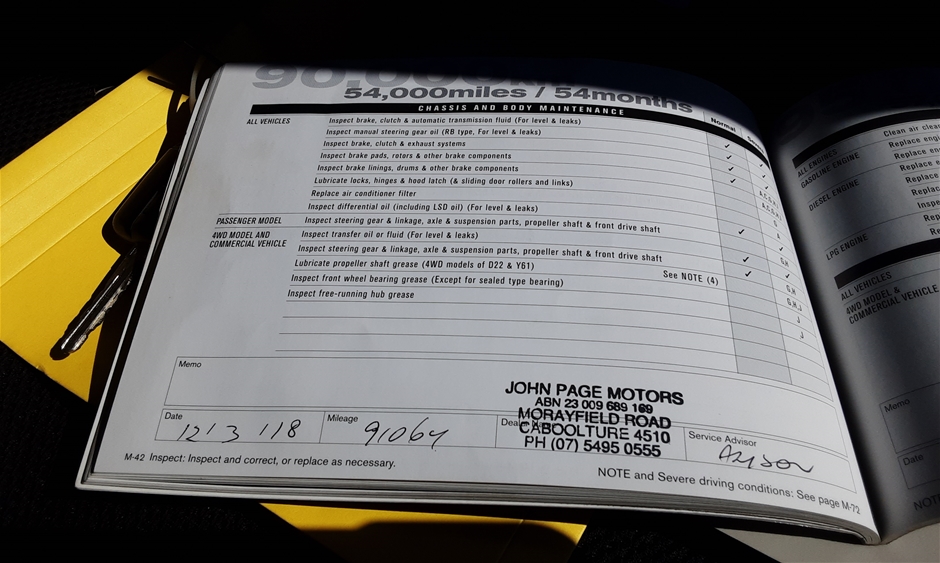 90,000
54,000miles / 54months
CHASSIS AND BODY MAINTENANCE
Normal
ALL VEHICLES
Inspect brake, clutch & automatic transmission fluid (For level & leaks)
Inspect manual steering gear oil (RB type, For level & leaks)
Inspect brake, clutch & exhaust systems
Inspect brake pads, rotors & other brake components
Inspect brake linings, drums & other brake components
Lubricate locks, hinges & hood latch (& sliding door rollers and links)
Replace air conditioner filter
Inspect differential oil (including LSD oil) (For level & leaks)
PASSENGER MODEL
Inspect steering gear & linkage, axle & suspension parts, propeller shaft & front drive shaft
4WD MODEL AND
COMMERCIAL VEHICLE
Inspect transfer oil or fluid (For level & leaks)
Inspect steering gear & linkage, axle & suspension parts, propeller shaft & front drive shaft
G,H
Lubricate propeller shaft grease (4WD models of D22 & Y61)
See NOTE (4)
Inspect front wheel bearing grease (Except for sealed type bearing)
G,H
Inspect free-running hub grease
G,H,J
J
J
Memo
Date
12/3/18
Mileage
91064
JOHN PAGE MOTORS
ABN 23 009 689 169
MORAYFIELD ROAD
CABOOLTURE 4510
PH (07) 5495 0555
Service Advisor
M-42 Inspect: Inspect and correct, or replace as necessary.
NOTE and Severe driving conditions: See page M-72
ALL ENGINES
Clean air
GASOLINE ENGINE
Replace
DIESEL ENGINE
Replace
Replace
Replace
LPG ENGINE
Replace
ALL VEHICLES
4WD MODEL &
COMMERCIAL VEHICLE
Memo
Date